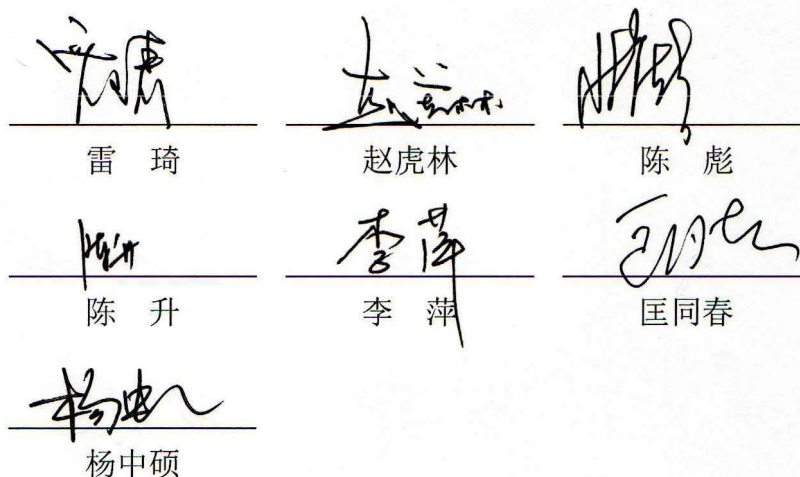 雷 琦 赵虎林 陈 彪
陈升 李萍
陈 升 李 萍 匡同春
杨中硕